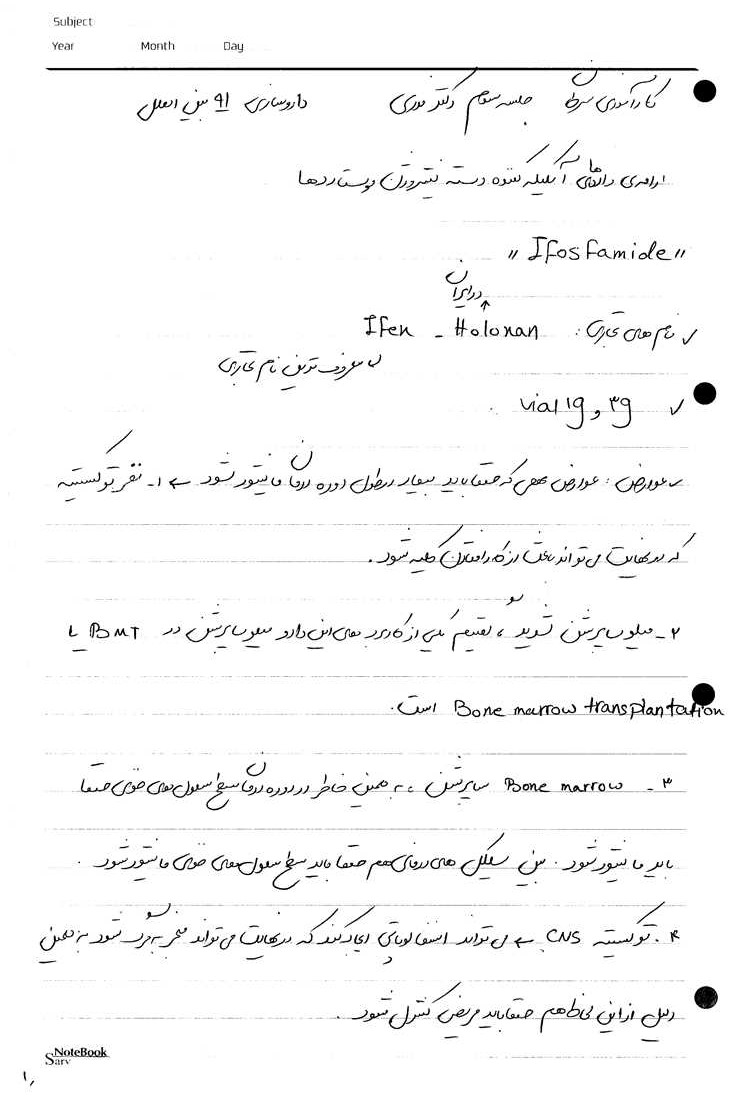 Subject
Year Month Day
کارآموزی سرطان جلسه سوم دکتر نوری داروسازی 91 بین الملل
ادامه‌ی داروهای آلکیله کننده دسته نیتروژن موستاردها
"Ifosfamide"
در ایران
✓ نام های تجاری: Holoxan - Ifex
معروف ترین نام تجاری
✓ vial 1g و 3g.
✓ عوارض: عوارض مهمی که حتما باید بیمار در طول دوره درمان مانیتور شود ← ۱- نفروتوکسیسیته
که در نهایت می تواند باعث از کار افتادن کلیه شود.
۲- میلوساپرشن شدید، یکی از کاربرد های این دارو میلوساپرشن در BMT یا
Bone marrow transplantation است.
۳- Bone marrow ساپرشن، به همین خاطر در دوره درمان سطح سلول های خونی حتما
باید مانیتور شود. بین سیکل های درمانی هم حتما باید سطح سلول های خونی مانیتور شود.
۴. توکسیسیته CNS ← می تواند انسفالوپاتی ایجاد کند که در نهایت می تواند منجر به مرگ شود به همین
دلیل از این لحاظ هم حتما باید مریض کنترل شود.
Sarv NoteBook
۱